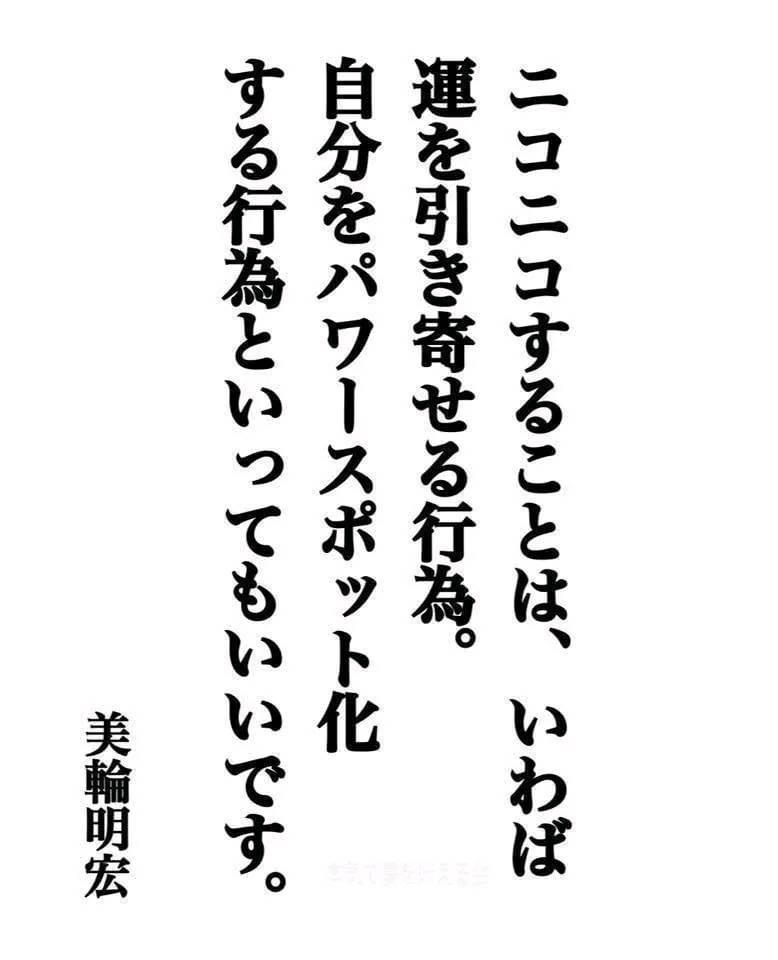 ニコニコすることは、いわば
運を引き寄せる行為。
自分をパワースポット化
する行為といってもいいです。
美輪明宏